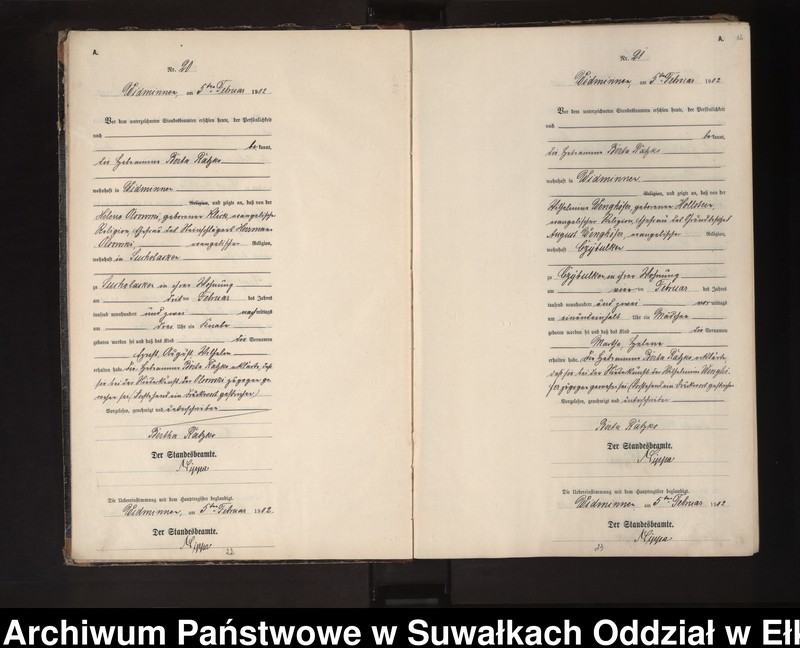 A.
Nr. 20
Widminnen, am 5ten Februar 1902
Vor dem unterzeichneten Standesbeamten erschien heute, der Persönlichkeit
nach
bekannt,
die Hebamme Berta Rätzko
wohnhaft in Widminnen
Religion, und zeigte an, daß von der
Helene geborenen evangelischer
Religion, Ehefrau des Steinschlägers Herrmann
evangelischer Religion,
wohnhaft in Sucholasken
zu Sucholasken in ihrer Wohnung
am drei ten Februar des Jahres
tausend neunhundert und zwei nachmittags
um drei Uhr ein Knabe
geboren worden sei und daß das Kind die Vornamen
Ernst, August, Wilhelm
erhalten habe. Die Hebamme Berta Rätzko erklärte, daß
sie bei der Niederkunft der zugegen ge-
wesen sei. (Vorstehend ein Druckwort gestrichen.)
Vorgelesen, genehmigt und unterschrieben
Bertha Rätzko
Der Standesbeamte.
Nippa
Die Uebereinstimmung mit dem Hauptregister beglaubigt.
Widminnen, am 5ten Februar 1902
Der Standesbeamte.
Nippa
22
A.
Nr. 21
Widminnen, am 5ten Februar 1902
Vor dem unterzeichneten Standesbeamten erschien heute, der Persönlichkeit
nach
bekannt,
die Hebamme Berta Rätzko
wohnhaft in Widminnen
Religion, und zeigte an, daß von der
Wilhelmine geborenen
evangelischer Religion, Ehefrau des
August evangelischer Religion,
wohnhaft Czybulken
zu Czybulken in ihrer Wohnung
am vier ten Februar des Jahres
tausend neunhundert und zwei vormittags
um Uhr ein Mädchen
geboren worden sei und daß das Kind die Vornamen
Martha, Helene
erhalten habe. Die Hebamme Berta Rätzko erklärte,
daß sie bei der Niederkunft der Wilhelmine
zugegen gewesen sei. (Vorstehend ein Druckwort gestrichen
Vorgelesen, genehmigt und unterschrieben
Berta Rätzko
Der Standesbeamte.
Nippa
Die Uebereinstimmung mit dem Hauptregister beglaubigt.
Widminnen, am 5ten Februar 1902
Der Standesbeamte.
Nippa
23
Archiwum Państwowe w Suwałkach Oddział w Ełk